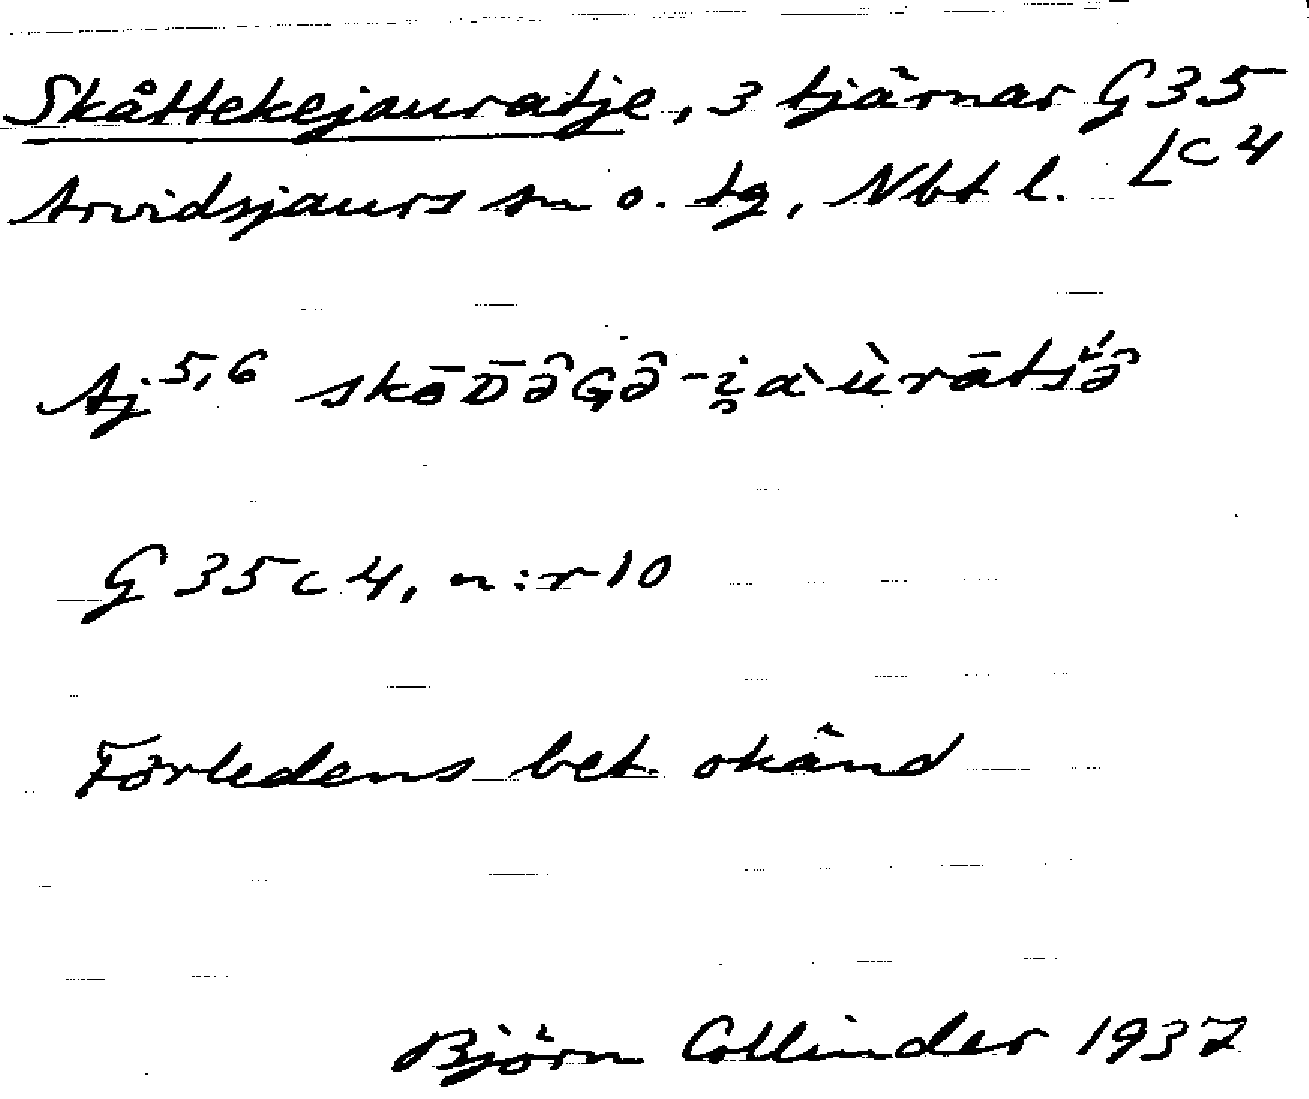 Skåttekejauratje, 3 tjärnar G 35
Arvidsjaurs sn o. tg, Nbt l. Lc4
Aj 5,6 skōD̄ə̂Gə̂-i̯àu̇̀rātš́ə̂
G 35 c 4, n:r 10
Förledens bet. okänd
Björn Collinder 1937